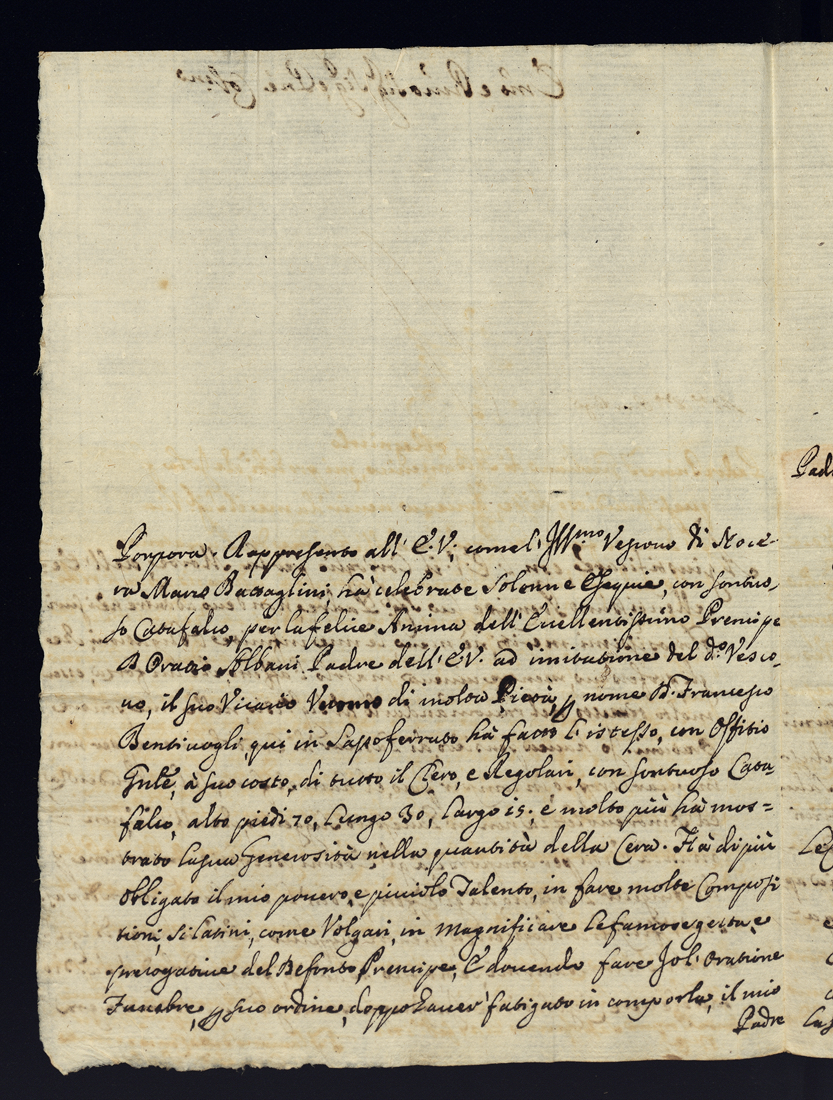 Porpora. Rappresento all' E.V., come l'Ill.mo Vescovo di Noce-
ra Mario Battaglini, hà celebrate solenne Esequie, con sontuo-
so Catafalco, per la felice Anima dell' Eccellentissimo Prencipe
D. Oratio Albani Padre dell' E.V. ad imitatione del d.o Vesco-
uo, il suo Vicario di molta Pietà, nome D. Francesco
Bentiuogli, qui in Sassoferrato hà fatto l'istesso, con Offitio
Gnle, à suo costo, di tutto il Clero, e Regolari, con sontuoso Cata-
falco, alto piedi 70, Lungo 30, Largo 15. e molto più hà mos=
trato la sua Generosità nella quantità della Cera. Hà di più
obligato il mio pouero, e picciolo Talento, in fare molte Composi
tioni, si latini, come Volgari, in magnificare le famose gesta, e
prerogatiue del Defonto Prencipe, E douendo fare Jol' Oratione
Funebre, suo ordine, doppo hauer fatigato in comporla, il mio
Padre